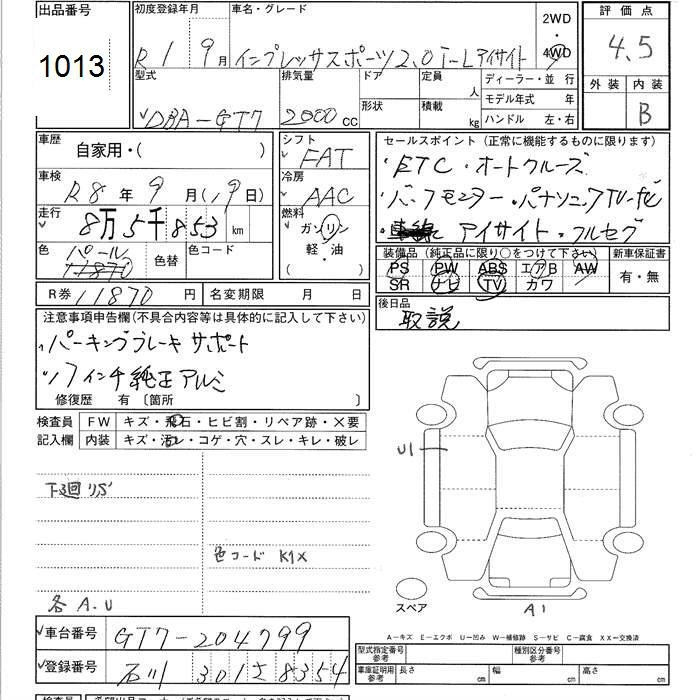 出品番号
1013
初度登録年月
R 1 9月
車名・グレード
インプレッサスポーツ2.0i-Lアイサイト
2WD
・
4WD
評価点
4.5
外装 内装
B
型式
DBA-GT7
排気量
2000cc
ドア 定員 人
形状 積載 kg
ディーラー・並行
モデル年式 年
ハンドル 左・右
車歴
自家用・( )
車検
R8年9月(19日)
走行
8万5千853km
色
パール
11870
色替
色コード
R券 11870円
名変期限 月 日
シフト
FAT
冷房
AAC
燃料
ガソリン
軽・油
( )
セールスポイント(正常に機能するものに限ります)
・ETC・オートクルーズ
・バックモニター・パナソニックTVナビ
・アイサイト・フルセグ
装備品(純正品に限り○をつけて下さい)
PS PW ABS エアB AW
SR ナビ TV カワ
新車保証書
有・無
後日品
取説
注意事項申告欄(不具合内容等は具体的に記入して下さい)
パーキングブレーキ サポート
17インチ純正アルミ
修復歴 有〔箇所 〕
検査員
記入欄
FW キズ・飛石・ヒビ割・リペア跡・×要
内装 キズ・汚レ・コゲ・穴・スレ・キレ・破レ
下廻リS
色コード K1X
各A.U
U1
スペア
A1
A-キズ E-エクボ U-凹み W-補修跡 S-サビ C-腐食 XX-交換済
車台番号 GT7-204799
登録番号 石川 301さ8354
型式指定番号
参考
種別区分番号
参考
車庫証明用
参考
長さ cm 幅 cm 高さ cm